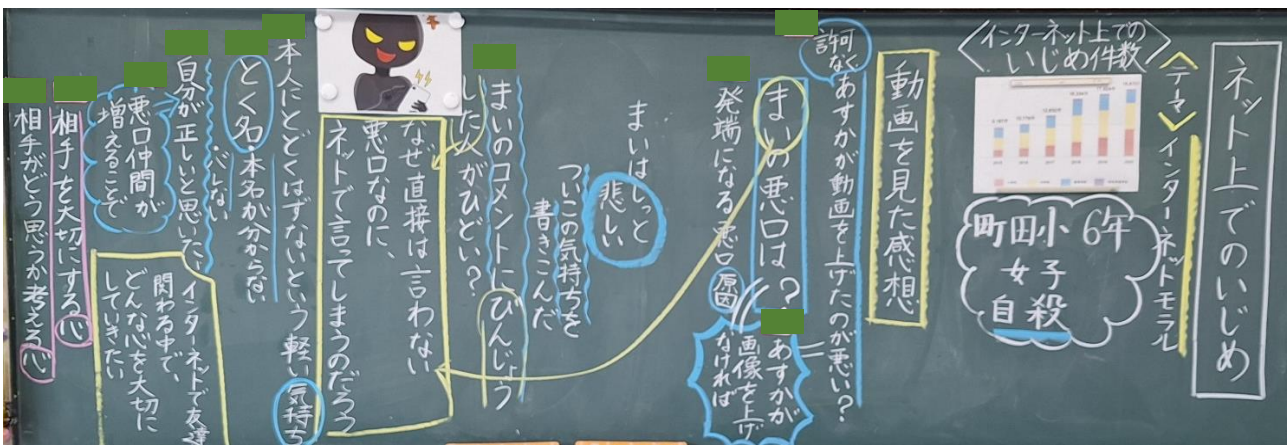 ネット上でのいじめ
〈テーマ〉インターネットモラル
〈インターネット上での
いじめ件数〉
町田小6年
女子
自殺
動画を見た感想
許可なく
あすかが動画を上げたのが悪い?
まいの悪口は?
発端になる悪口
原因
あすかが
画像を上げ
なければ
まいはしっと
悲しい
ついこの気持ちを
書きこんだ
まいのコメントにびんじょう
した人がひどい?
なぜ直接は言わない
悪口なのに、
ネットで言ってしまうのだろう
本人にとどくはずないという軽い気持ち
とく名・本名が分からない
・バレない
自分が正しいと思いたい
悪口仲間が
増えることで
インターネットで友達と
関わる中で、
どんな心を大切に
していきたい
相手を大切にする心
相手がどう思うか考える心